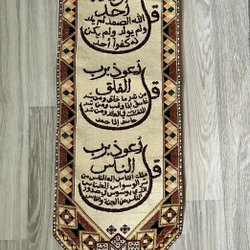 قل
أحد
الله الصمد لم يلد
ولم يولد ولم يكن
له كفوا أحد
قل
أعوذ برب
الفلق
من شر ما خلق ومن شر
غاسق إذا وقب ومن شر
النفاثات في العقد ومن شر
حاسد إذا حسد
قل
أعوذ برب
الناس
ملك الناس إله الناس من
شر الوسواس الخناس
الذي يوسوس في صدور
الناس من الجنة والناس